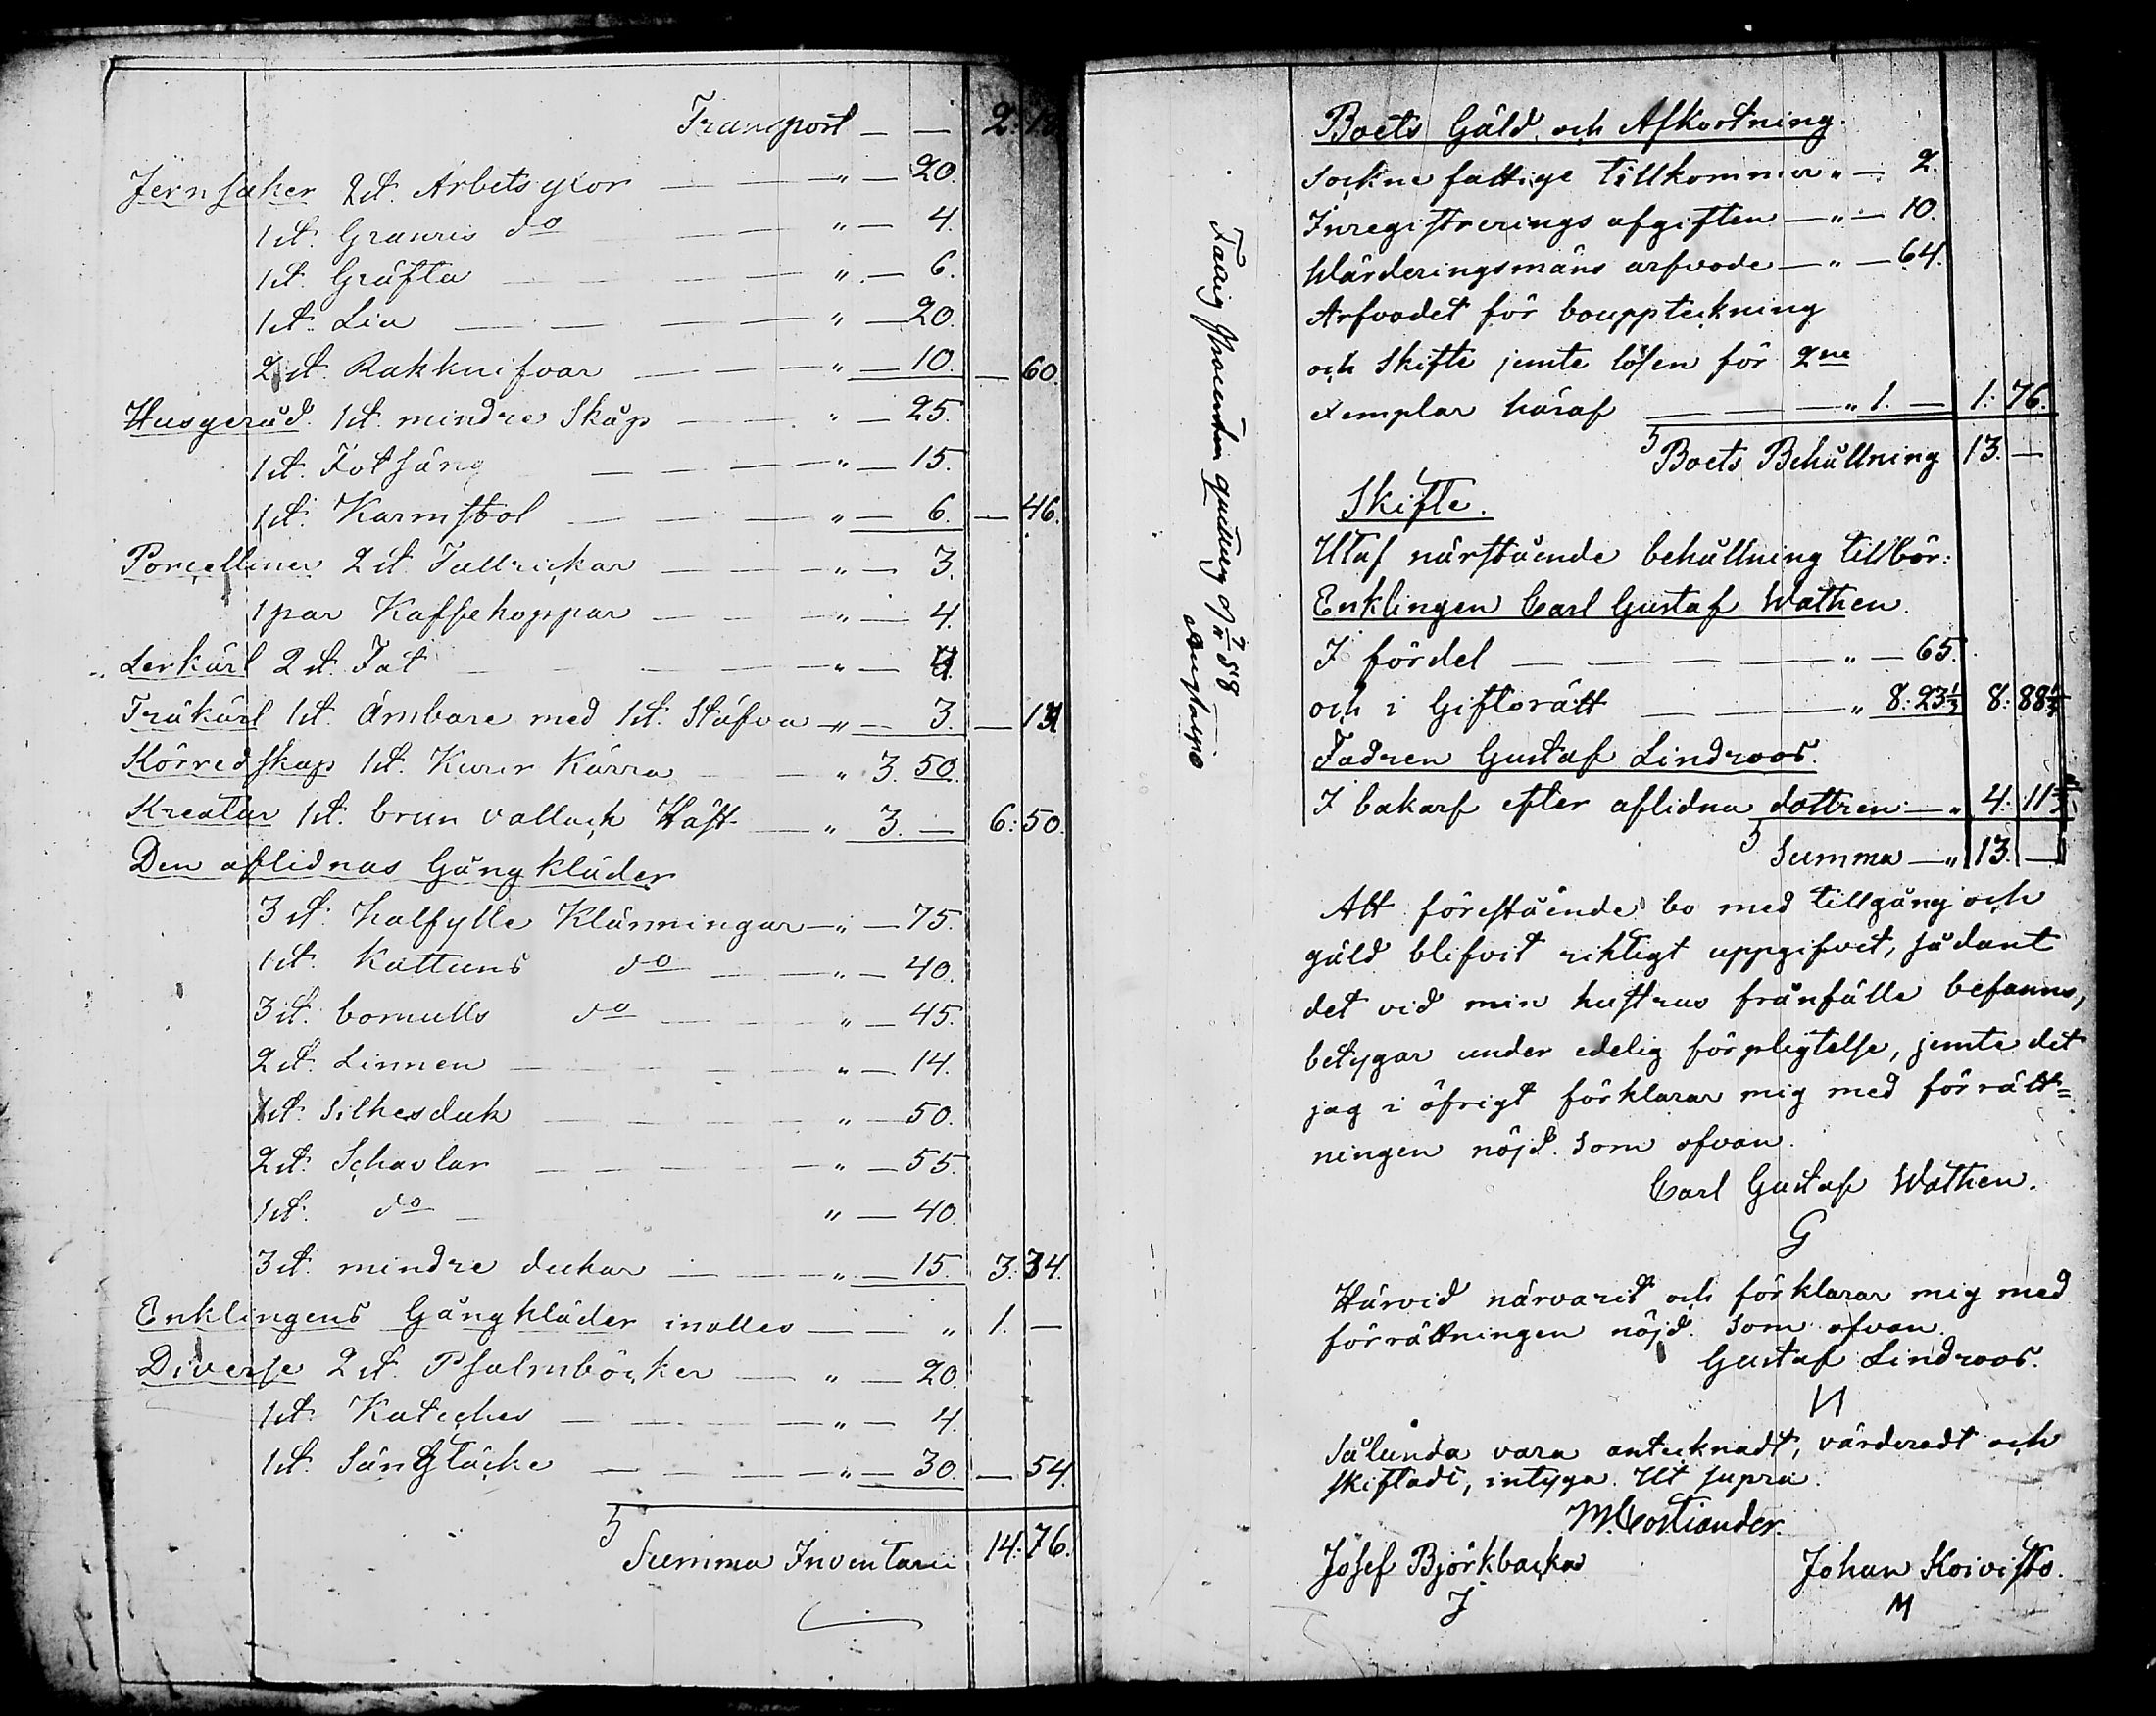 Transport — — 2: 18.
Jernsaker 2 st. Arbetsyxor — — " — 20.
1 st. Granris do — — " — 4.
1 st. Gräfta — — " — 6.
1 st. Lia — — — — " — 20.
2 st. Rakknifvar — — — " — 10. — 60.
Husgeråd. 1 st. mindre Skåp — — " — 25.
1 st. Fotsäng — — — " — 15.
1 st. Karmstol — — — " — 6. — 46.
Porcelliner 2 st. Tallrickar — — — " — 3.
1 par Kaffekoppar — — " — 4.
Lerkärl 2 st. Fat — — — " — 4.
Träkärl 1 st. Ämbare med 1 st. Stäfva — " — 3. — 14
Körredskap 1 st. Kurir Kärra — — " 3. 50.
Kreatur 1 st. brun vallack Häst — " 3. — 6: 50.
Den aflidnas Gångkläder
3 st. halfylle Klänningar — " — 75.
1 st. Kattuns do — — " — 40.
3 st. bomulls do — — " — 45.
2 st. Linnen — — — " — 14.
1 st. Silkesduk — — — " — 50.
2 st. Schavlar — — — — " — 55.
1 st. do — " — 40.
3 st. mindre dukar — — " — 15. 3. 34.
Enklingens Gångkläder inalles — — " 1. —
Diverse 2 st. Psalmböcker — " — 20.
1 st. Kateches — — — — " — 4.
1 st. Sängtäcke — — — — " — 30. — 54.
Summa Inventarii 14: 76.
Boets Gäld och Afkortning.
Sockne fattige tillkommer " — 2.
Inregistrerings afgiften — " — 10.
Wärderingsmäns arfvode — " — 64.
Arfvodet för bouppteckning
och Skifte jemte lösen för 2ne
exemplar häraf — — — " 1. — 1: 76.
Boets Behållning 13. —
Skifte.
Utaf närstående behållning tillbör:
Enklingen Carl Gustaf Wathen.
I fördel — — — — " — 65.
och i Giftorätt — — " 8: 23⅓ 8: 88⅓
Fadren Gustaf Lindroos.
I bakarf efter aflidna dottren — " 4: 11⅔
Summa — " 13. —
Att förestående bo med tillgång och
gäld blifvit riktigt uppgifvet, sådant
det vid min hustrus frånfälle befanns,
betygar under edelig förpligtelse, jemte det
jag i öfrigt förklarar mig med förrätt=
ningen nöjd. Som ofvan.
Carl Gustaf Wathen.
G
Härvid närvarit och förklarar mig med
förrättningen nöjd. Som ofvan.
Gustaf Lindroos.
Sålunda vara antecknadt, värderadt och
skiftadt, intyga. Ut supra.
M. Costiander.
Josef Björkbacka Johan Koivisto.
J M
Fattig Procenten 58